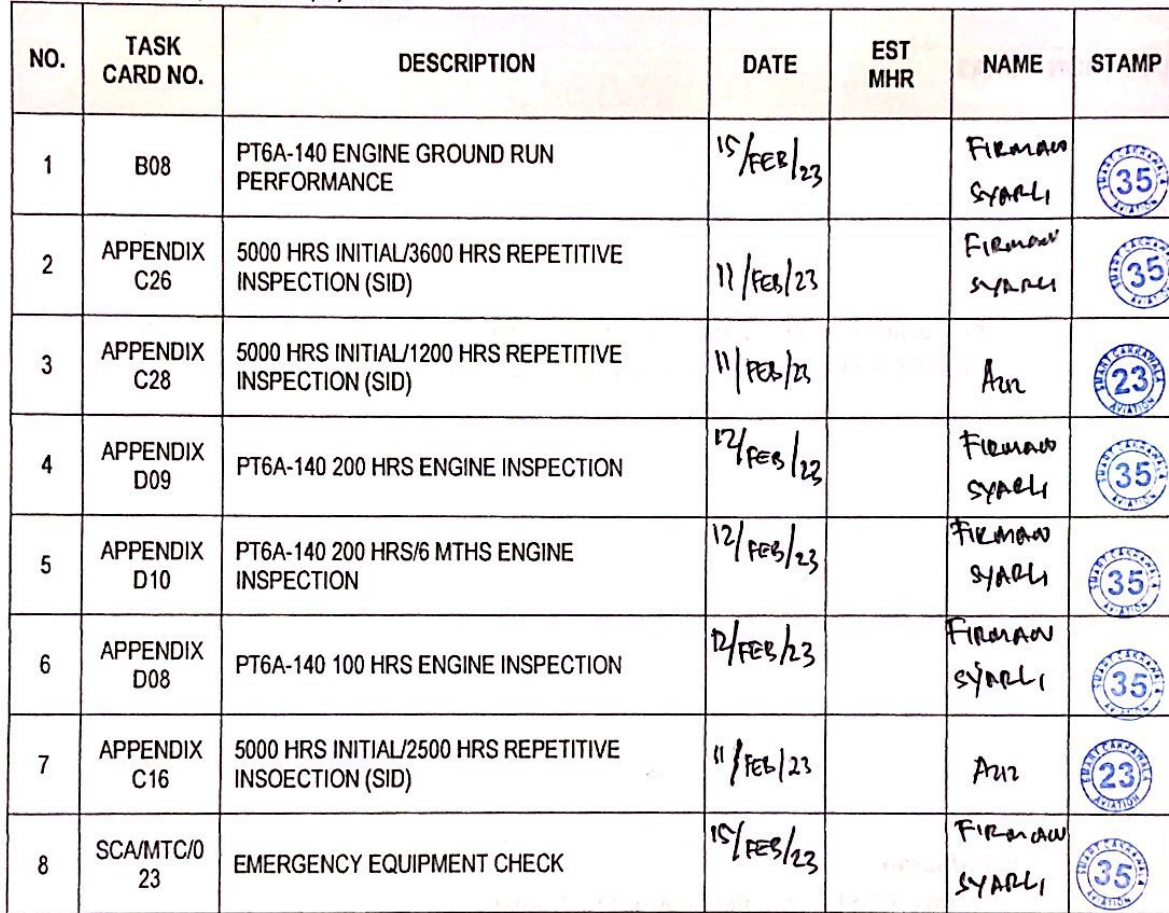 NO. TASK CARD NO. DESCRIPTION DATE EST MHR NAME STAMP
1 B08 PT6A-140 ENGINE GROUND RUN PERFORMANCE 15/FEB/23 FIRMAN SYARLI SMART CAKRAWALA 35 AVIATION
2 APPENDIX C26 5000 HRS INITIAL/3600 HRS REPETITIVE INSPECTION (SID) 11/FEB/23 FIRMAN SYARLI 35
3 APPENDIX C28 5000 HRS INITIAL/1200 HRS REPETITIVE INSPECTION (SID) 11/FEB/23 AZIZ SMART CAKRAWALA 23 AVIATION
4 APPENDIX D09 PT6A-140 200 HRS ENGINE INSPECTION 12/FEB/23 FIRMAN SYARLI 35
5 APPENDIX D10 PT6A-140 200 HRS/6 MTHS ENGINE INSPECTION 12/FEB/23 FIRMAN SYARLI 35
6 APPENDIX D08 PT6A-140 100 HRS ENGINE INSPECTION 12/FEB/23 FIRMAN SYARLI 35
7 APPENDIX C16 5000 HRS INITIAL/2500 HRS REPETITIVE INSOECTION (SID) 11/FEB/23 AZIZ SMART CAKRAWALA 23 AVIATION
8 SCA/MTC/0 23 EMERGENCY EQUIPMENT CHECK 15/FEB/23 FIRMAN SYARLI 35